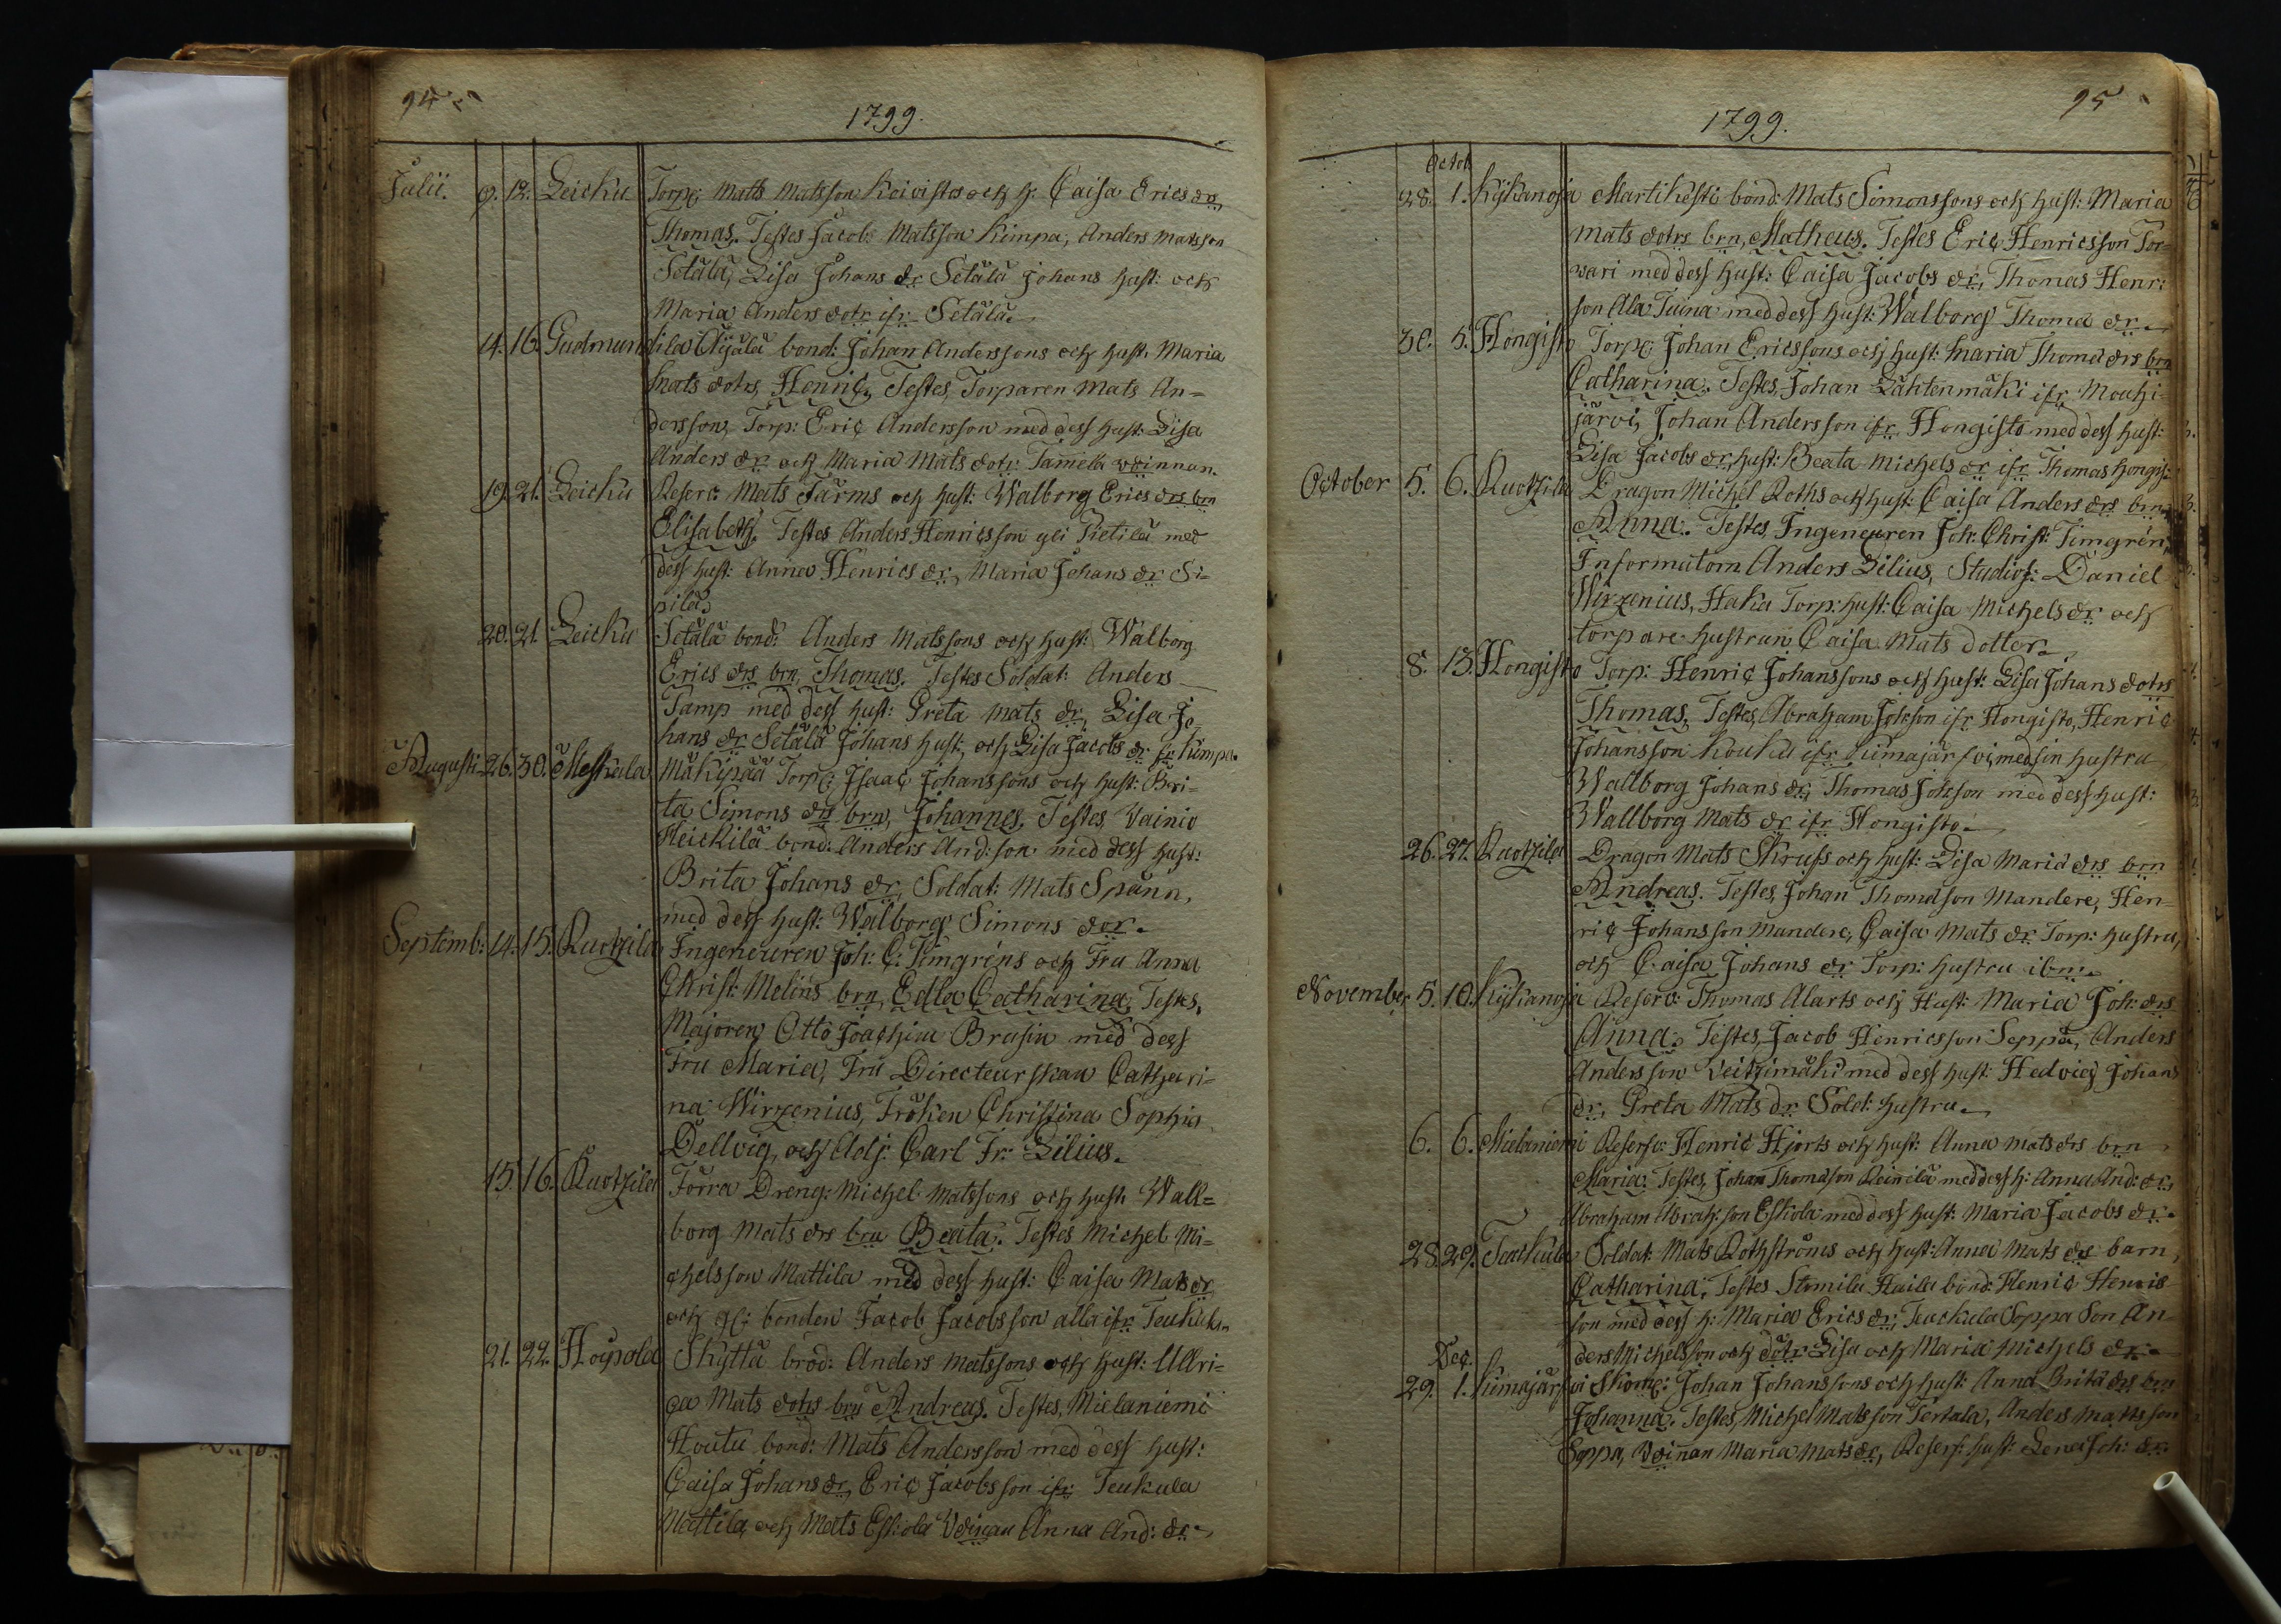 94
1799.
Julii. 9. 12. Leicku Torp: Matts Matsson Koivistos och h: Caisa Erics dr,
Thomas. Testes Jacob Matsson Kimpa, Anders Matsson
Setälä, Lisa Johans dr Setälä Johans hust: och
Maria Anders dotr ifr Setälä.
14. 16. Gudmundila Äijälä bond: Johan Anderssons och hust. Maria
Mats dotrs, Henric, Testes, Torparen Mats An=
dersson, Torp: Eric Andersson med dess hust: Lisa
Anders dr och Maria Mats dotr Tamela
19. 21. Leicku Reserv: Mats Järms och hust: Walborg Erics drs brn
Elisabeth, Testes Anders Henricsson yli Pietilä med
dess hust: Anna Henrics dr, Maria Johans dr Si=
pilä.
20. 21. Leicku Setälä bond: Anders Matssons och hust: Walborg
Erics drs brn, Thomas. Testes Soldat: Anders
Tamp med dess hust: Greta Mats dr, Lisa Jo
hans dr Setälä Johans hust., och Lisa Jacobs dr fr Kimpa.
Augusti 26. 30. Meskala Mäkipää Torp: Isaac Johanssons och hust: Bri=
ta Simons drs brn, Johannes. Testes, Vainio
Heickilä bond: Anders And:son med dess hust:
Brita Johans dr, Soldat: Mats Spänn,
med dess hust: Walborg Simons dor.
Septemb: 14. 15. Ruotzila Ingeneuren Joh: C: Timgréns och Fru Anna
Christ: Melins brn, Edla Catharina, Testes,
Majoren Otto Joachim Brusin med dess
Fru Maria, Fru Directeurskan Cathari=
na Wirzenius, Fröken Christina Sophia
Dellvig, och Adj: Carl Fr: Lilius.
15. 16. Ruotzila Torra Dreng: Michel Matssons och hust. Wall=
borg Mats drs brn Beata. Testes Michel Mi=
chelsson Mattila med dess hust: Caisa Mats dr
och gl: bonden Jacob Jacobsson alla ifr Teukula
21. 22. Hoipola Skyttä bröd: Anders Matssons och hust: Ulri=
ca Mats dotrs brn Andreas. Testes, Mielaniemi
Houtu bond: Mats Andersson med dess hust:
Caisa Johans dr, Eric Jacobsson ifr Teukula
Mattila, och Mats Eskola Anna And: dr
95
1799.
Octob
28. 1. Kijkanoja Martikesti bond: Mats Simonssons och hust: Maria
Mats dotrs brn, Matheus. Testes Eric Henricsson Tor=
wari med dess hust: Caisa Jacobs dr, Thomas Henr:
son Ala Tuina med dess hust: Walborg Thoma dr
30. 5. Hongisto Torp: Johan Ericssons och hust: Maria Thoma drs brn
Catharina. Testes, Johan Lähtenmäki ifr Mouhi=
järvi, Johan Andersson ifr Hongisto med dess hust:
Lisa Jacobs dr, hust: Beata Michels dr ifr Thomas Hongis:
October 5. 6. Ruotzila Dragon Michel Roths och hust: Caisa Anders drs brn
Anna. Testes, Ingeneuren Joh: Christ: Timgrén,
Informatorn Anders Lilius, Studios: Daniel
Wirzenius, Haka Torp: hust: Caisa Michels dr och
torpare hustrun Caisa Mats dotter.
8. 13. Hongisto Torp: Henric Johanssons och hust: Lisa Johans dotrs
Thomas, Testes, Abraham Johsson ifr Hongisto, Henric
Johansson Kouku ifr Kiimajärfvi med sin hustru
Wallborg Johans dr, Thomas Johsson med dess hust:
Wallborg Mats dr ifr Hongisto.
26. 27. Ruotzila Dragon Mats Skrufs och hust: Lisa Maria drs brn
Andreas. Testes, Johan Thomasson Mandere, Hen=
ric Johansson Mandere, Caisa Mats dr Torp: hustru,
och Caisa Johans dr Torp: hustru ibm.
November 5. 10. Kijkanoja Reserv: Thomas Alarts och Hust: Maria Joh: drs
Anna. Testes, Jacob Henricsson Seppä, Anders
Andersson Veitzimäki med dess hust: Hedvig Johans
dr, Greta Mats dr Sold: hustru.
6. 6. Mielaniemi Reserv: Henric Hjorts och hust: Anna Mats drs brn
Maria. Testes, Johan Thomasson Reinilä med dess h: Anna And: dr,
Abraham Abrah:son Eskola med dess hust: Maria Jacobs dr.
28. 29. Teukula Soldat: Mats Rothströms och hust: Anna Mats drs barn,
Catharina, Testes Stomila Haila bond: Henric Henric
son med dess h: Maria Erics dr, Teukula Soppa Son An
ders Michelsson och dotr Lisa och Maria Michels dr
Dec.
29. 1. Kimajärfvi Skom: Johan Johanssons och hust: Anna Brita drs brn
Johanna. Testes, Michel Matsson Tertala, Anders Mattsson
Soppa, Maria Mats dr, Reserf: hust: